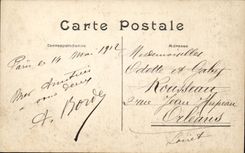 Carte Postale
Correspondance
Adresse
Paris le 14 Mai 1912
Mes Amitiés
à vous deux
A. Borde
Mesdemoiselles
Odette et Gaby
Rousseau
2 rue Jean
Orléans
Loiret